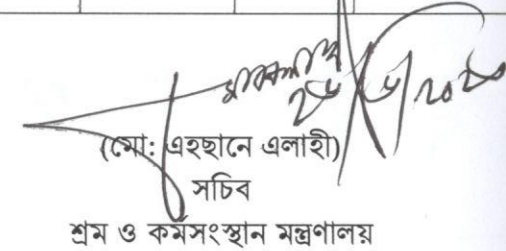 (মো: এহছানে এলাহী)
সচিব
শ্রম ও কর্মসংস্থান মন্ত্রণালয়